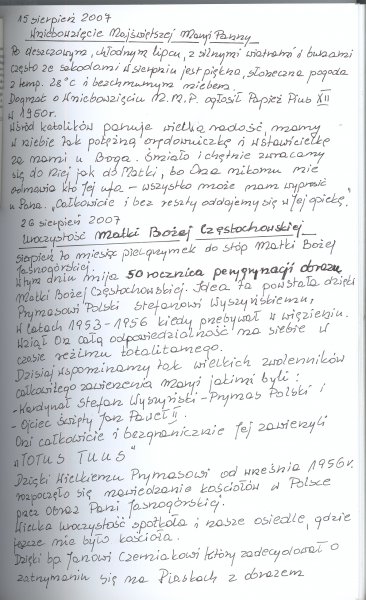 15 sierpień 2007
Wniebowzięcie Najświętszej Maryi Panny
Po deszczowym, chłodnym lipcu, z silnymi wiatrami i burzami
często ze szkodami w sierpniu jest piękna, słoneczna pogoda
z temp. 28°C i bezchmurnym niebem.
Dogmat o Wniebowzięciu N.M.P. ogłosił Papież Pius XII
w 1950r.
Wśród katolików panuje wielka radość, mamy
w niebie tak potężną orędowniczkę i wstawicielkę
za nami u Boga. Śmiało i chętnie zwracamy
się do Niej jak do Matki, bo Ona nikomu nie
odmawia kto Jej ufa - wszystko może nam wyprosić
u Pana. Całkowicie i bez reszty oddajemy się w Jej opiekę.
26 sierpień 2007
Uroczystość Matki Bożej Częstochowskiej
Sierpień to miesiąc pielgrzymek do stóp Matki Bożej
Jasnogórskiej.
W tym dniu mija 50 rocznica peregrynacji obrazu
Matki Bożej Częstochowskiej. Idea ta powstała dzięki
Prymasowi Polski Stefanowi Wyszyńskiemu,
w latach 1953-1956 kiedy przebywał w więzieniu.
Wziął On całą odpowiedzialność na siebie w
czasie reżimu totalitarnego.
Dzisiaj wspominamy tak wielkich zwolenników
całkowitego zawierzenia Maryi jakimi byli:
- Kardynał Stefan Wyszyński - Prymas Polski i
- Ojciec Święty Jan Paweł II.
Oni całkowicie i bezgranicznie Jej zawierzyli
"TOTUS TUUS"
Dzięki Wielkiemu Prymasowi od września 1956r.
rozpoczęło się nawiedzanie kościołów w Polsce
przez Obraz Pani Jasnogórskiej.
Wielka uroczystość spotkała i nasze osiedle, gdzie
jeszcze nie było kościoła.
Dzięki bp. Janowi Czerniakowi który zadecydował o
zatrzymaniu się na Piaskach z obrazem